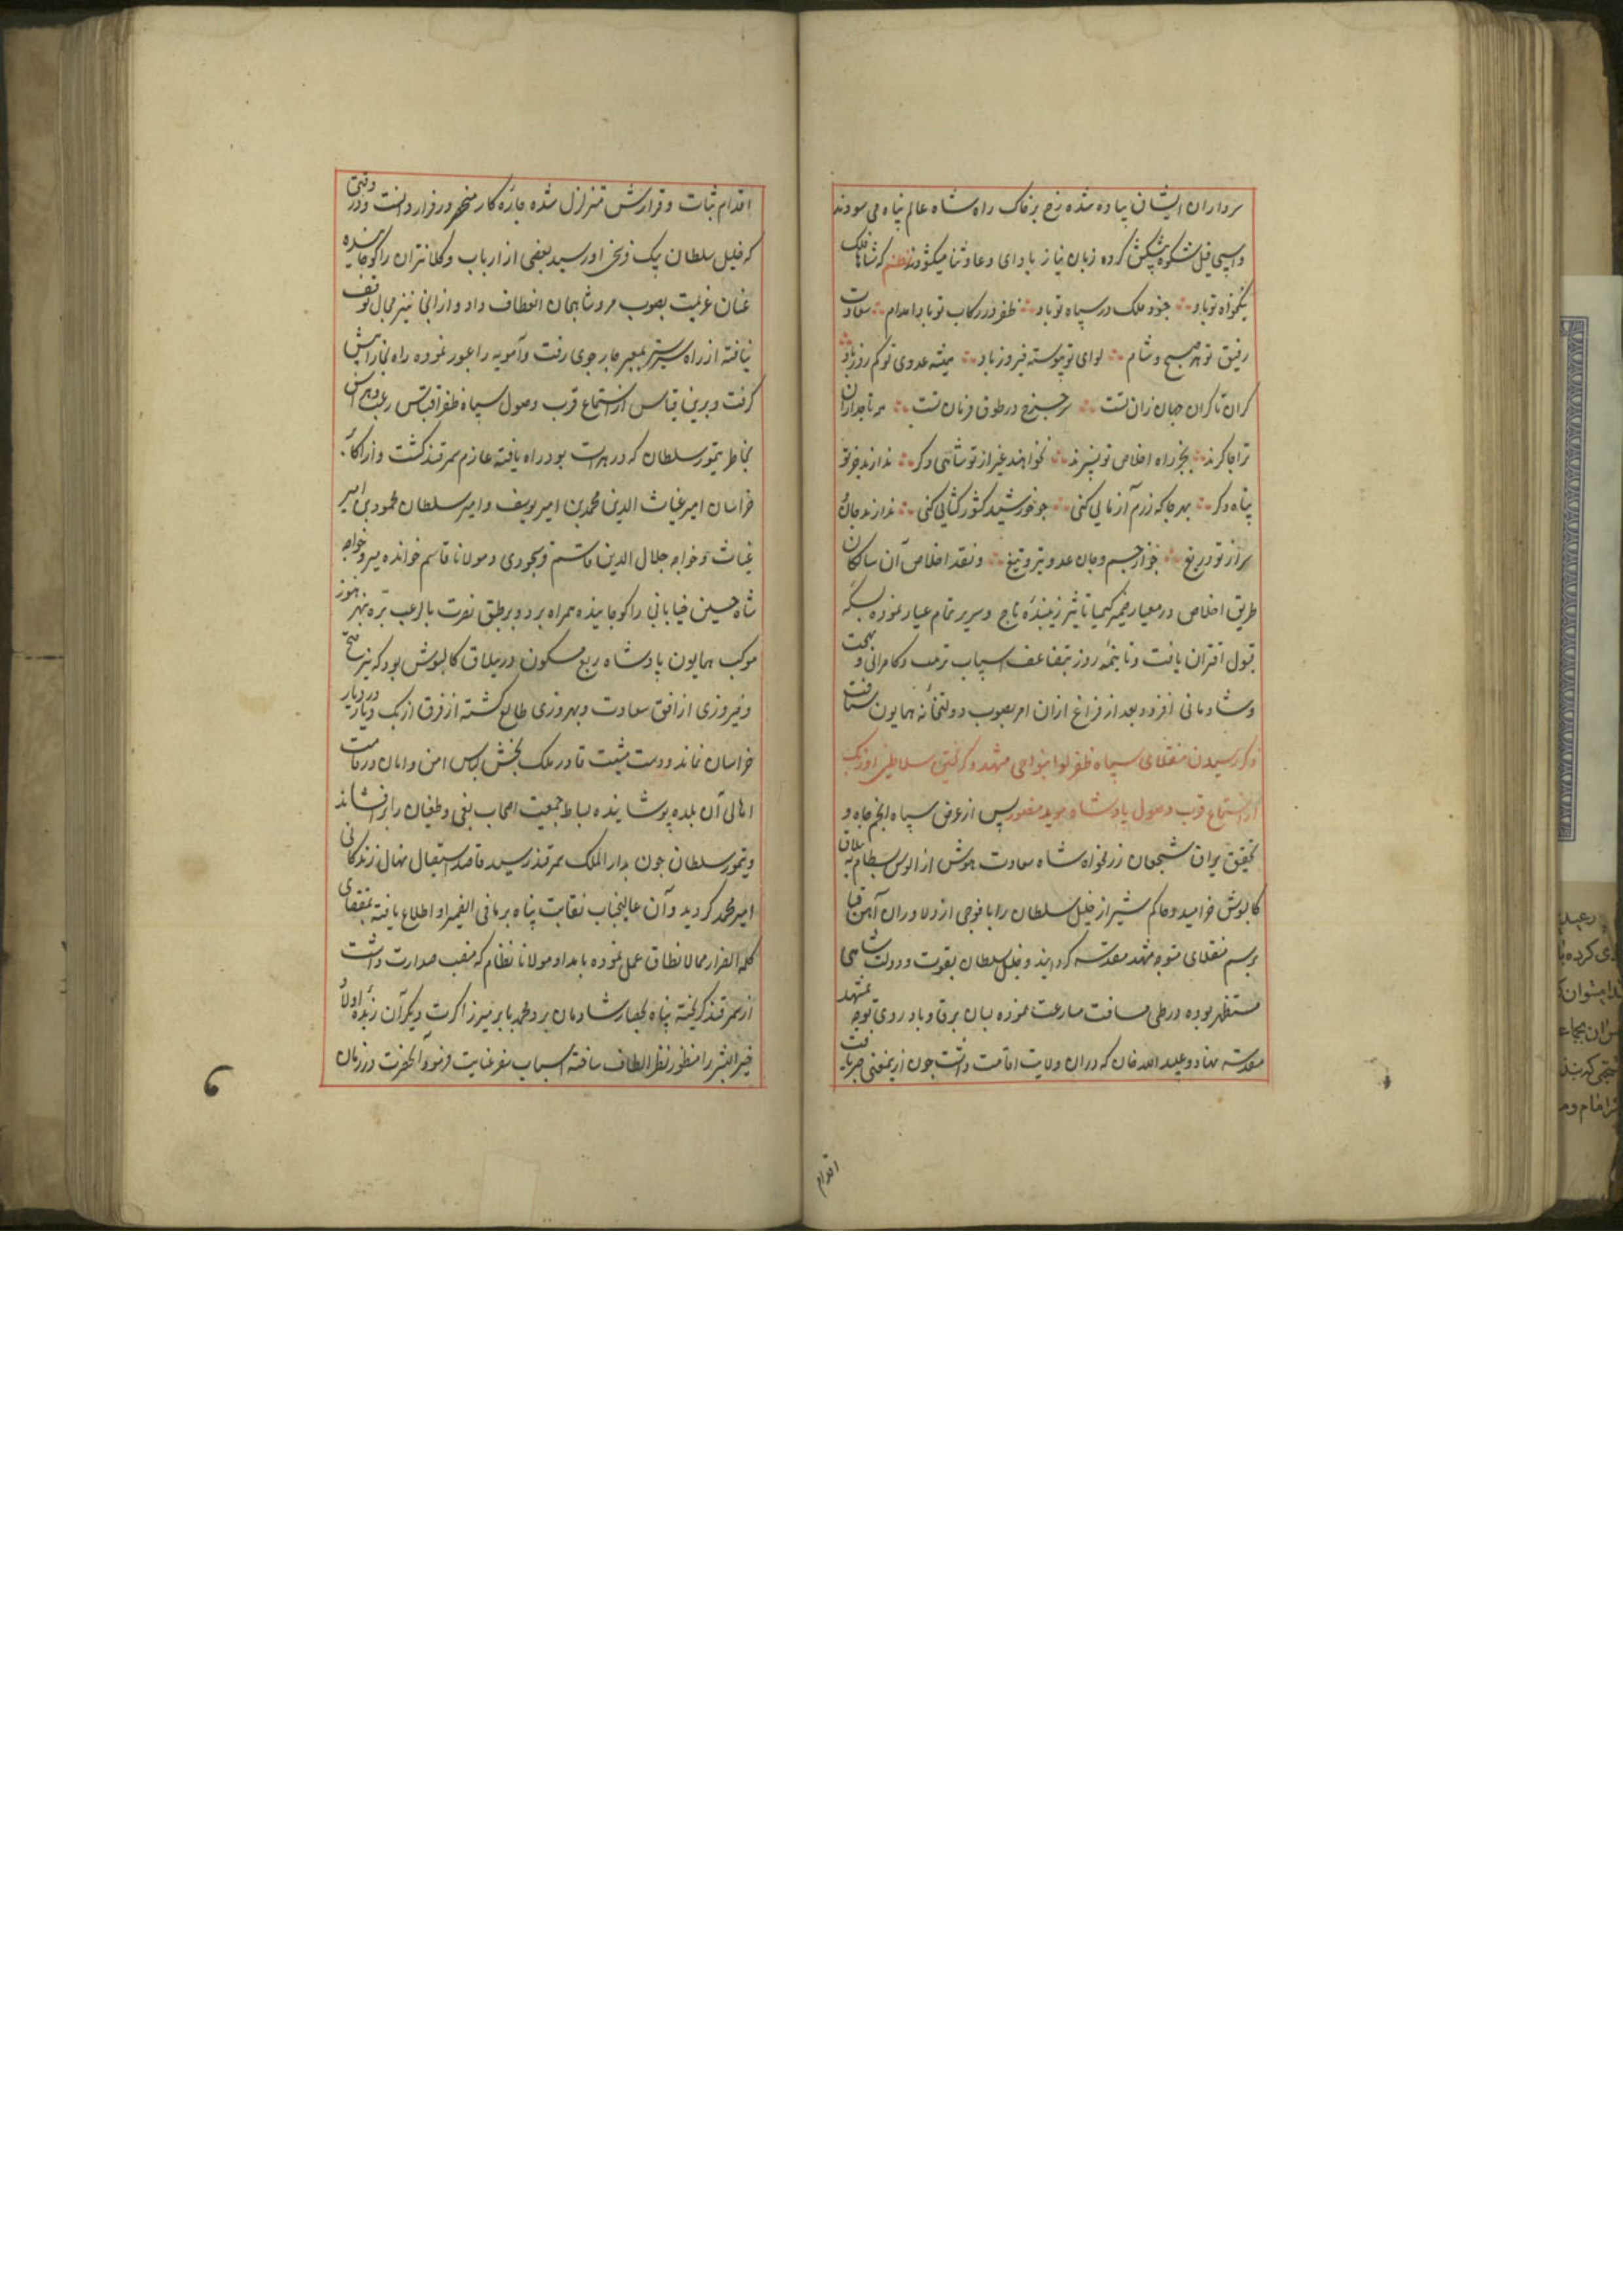 سرداران ایشان پیاده شده رخ بر خاک راه شاه عالم پناه می سودند
و اسپی فیل شکوه پیشکش کرده زبان نیاز بادای دعا و ثنا میکشودند نظم که شاها فلک
نیکخواه تو باد جنود ملک در سپاه تو باد ظفر در رکاب تو بادا مدام سعادت
رفیق تو هر صبح و شام لوای تو پیوسته فیروز باد همیشه عدوی تو کم روز باد
کران تا کران جهان زان تست سر چرخ در طوق فرمان تست همه تاجداران
ترا چاکرند بجز راه اخلاص تو نسپرند نخواهند غیر از تو شاهی دکر ندارند جز تو
پناه دکر بهر جا که رزم آزمایی کنی چو خورشید کشور کشایی کنی ندارند جان و
سر از تو دریغ جز از جسم و جان عدو تیر و تیغ و نقد اخلاص آن سالکان
طریق اخلاص در معیار ضمیر کیمیا تاثیر زیبنده تاج و سریر تمام عیار نموده بسکه
قبول اقتران یافت و تا نیمه روز بتضاعف اسباب ترتیب و کامرانی و بهجت
و شادمانی افزود بعد از فراغ ازان امر بصوب دولتخانه همایون شتافت
ذکر رسیدن منقلای سپاه ظفر لوا بنواحی مشهد و کریختن سلاطین اوزبک
از استماع قرب وصول پادشاه موید منصور پس از عرض سپاه انجم جاه و
تحقیق یراق شجعان رزمخواه شاه سعادت هوش از الوس بسطام به ییلاق
کالپوش خرامید و حاکم شیراز خلیل سلطان را با فوجی از دلاوران آهن قبا
برسم منقلای متوجه مشهد مقدسه کردانید و خلیل سلطان بقوت و دولت شاهی
مستظهر بوده در طی مسافت مسارعت نموده بسان برق و باد روی توجه بمشهد
مقدسه نهاد و عبید الله خان که دران ولایت اقامت داشت چون ازینمعنی خبر یافت
اقدام
اقدام ثبات و قرارش متزلزل شده چاره کار منحصر در فرار دانست و در وقتی
که خلیل سلطان بیک فرسخی او رسید بعضی از ارباب و کلانتران را کوچانیده
عنان عزیمت بصوب مرو شاهجان انعطاف داد و از انجا نیز مجال توقف
نیافته از راه بمعبر چارجوی رفت و آمویه را عبور نموده راه بخارا پیش
کرفت و برین قیاس از استماع قرب وصول سپاه ظفر اقتباس رعب و هراس
بخاطر تیمور سلطان که در هرات بود راه یافته عازم سمرقند کشت و از اکابر
خراسان امیر غیاث الدین محمد بن امیر یوسف و امیر سلطان محمود بن امیر
غیاث و خواجه جلال الدین قاسم و مولانا قاسم خوانده میر و خواجه
شاه حسین خیابانی را کوچانیده همراه برد و بر طبق نصرت بالرعب هنوز
موکب همایون پادشاه ربع مسکون در ییلاق کالپوش بود که نیر فتح
و فیروزی از افق سعادت و بهروزی طالع کشته از فرق ازبک دیار در دیار
خراسان نماند و دست مشیت قادر ملک بخش لباس امن و امان در قامت
اهالی آن بلده پوشانیده بساط جمعیت اصحاب بغی و طغیان را برافشاند
و تیمور سلطان چون بدار الملک سمرقند رسید قاصد استیصال نهال زندکانی
امیر محمد کردید و آن عالیجناب نقابت پناه بر ما فی الضمیر او اطلاع یافته بمقتضای
کلمه الفرار مما لا یطاق عمل نموده بامداد مولانا نظام که منصب صدارت داشت
از سمرقند کریخته پناه بحصار شادمان برد و محمد بابر میرزا کرت دیکر آن زبده اولاد
خیر البشر را منظور نظر الطاف ساخته اسباب سفر عنایت فرمود و آنحضرت در زمان